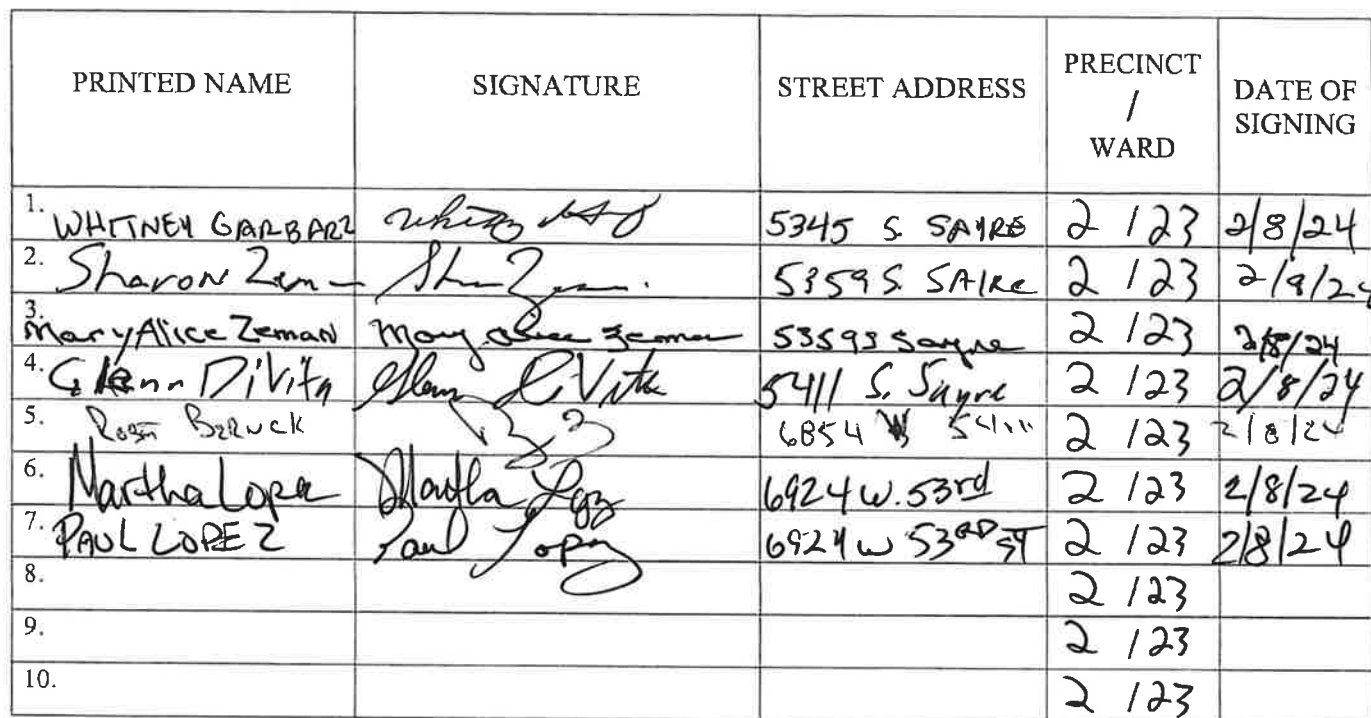 PRINTED NAME SIGNATURE STREET ADDRESS PRECINCT / WARD DATE OF SIGNING
1. WHITNEY GARBARZ 5345 S. SAYRE 2 / 23 2/8/24
2. Sharon 5359 S. SAIRE 2 / 23 2/8/24
3. Mary Alice Zeman Mary Alice Zeman 5359 S Sayre 2 / 23 2/8/24
4. Glenn DiVita Glenn DiVita 5411 S. Sayre 2 / 23 2/8/24
5. 6854 W 2 / 23 2/8/24
6. Martha Lopez Martha Lopez 6924 W. 53rd 2 / 23 2/8/24
7. PAUL LOPEZ Paul Lopez 6924 W 53RD ST 2 / 23 2/8/24
8. 2 / 23
9. 2 / 23
10. 2 / 23